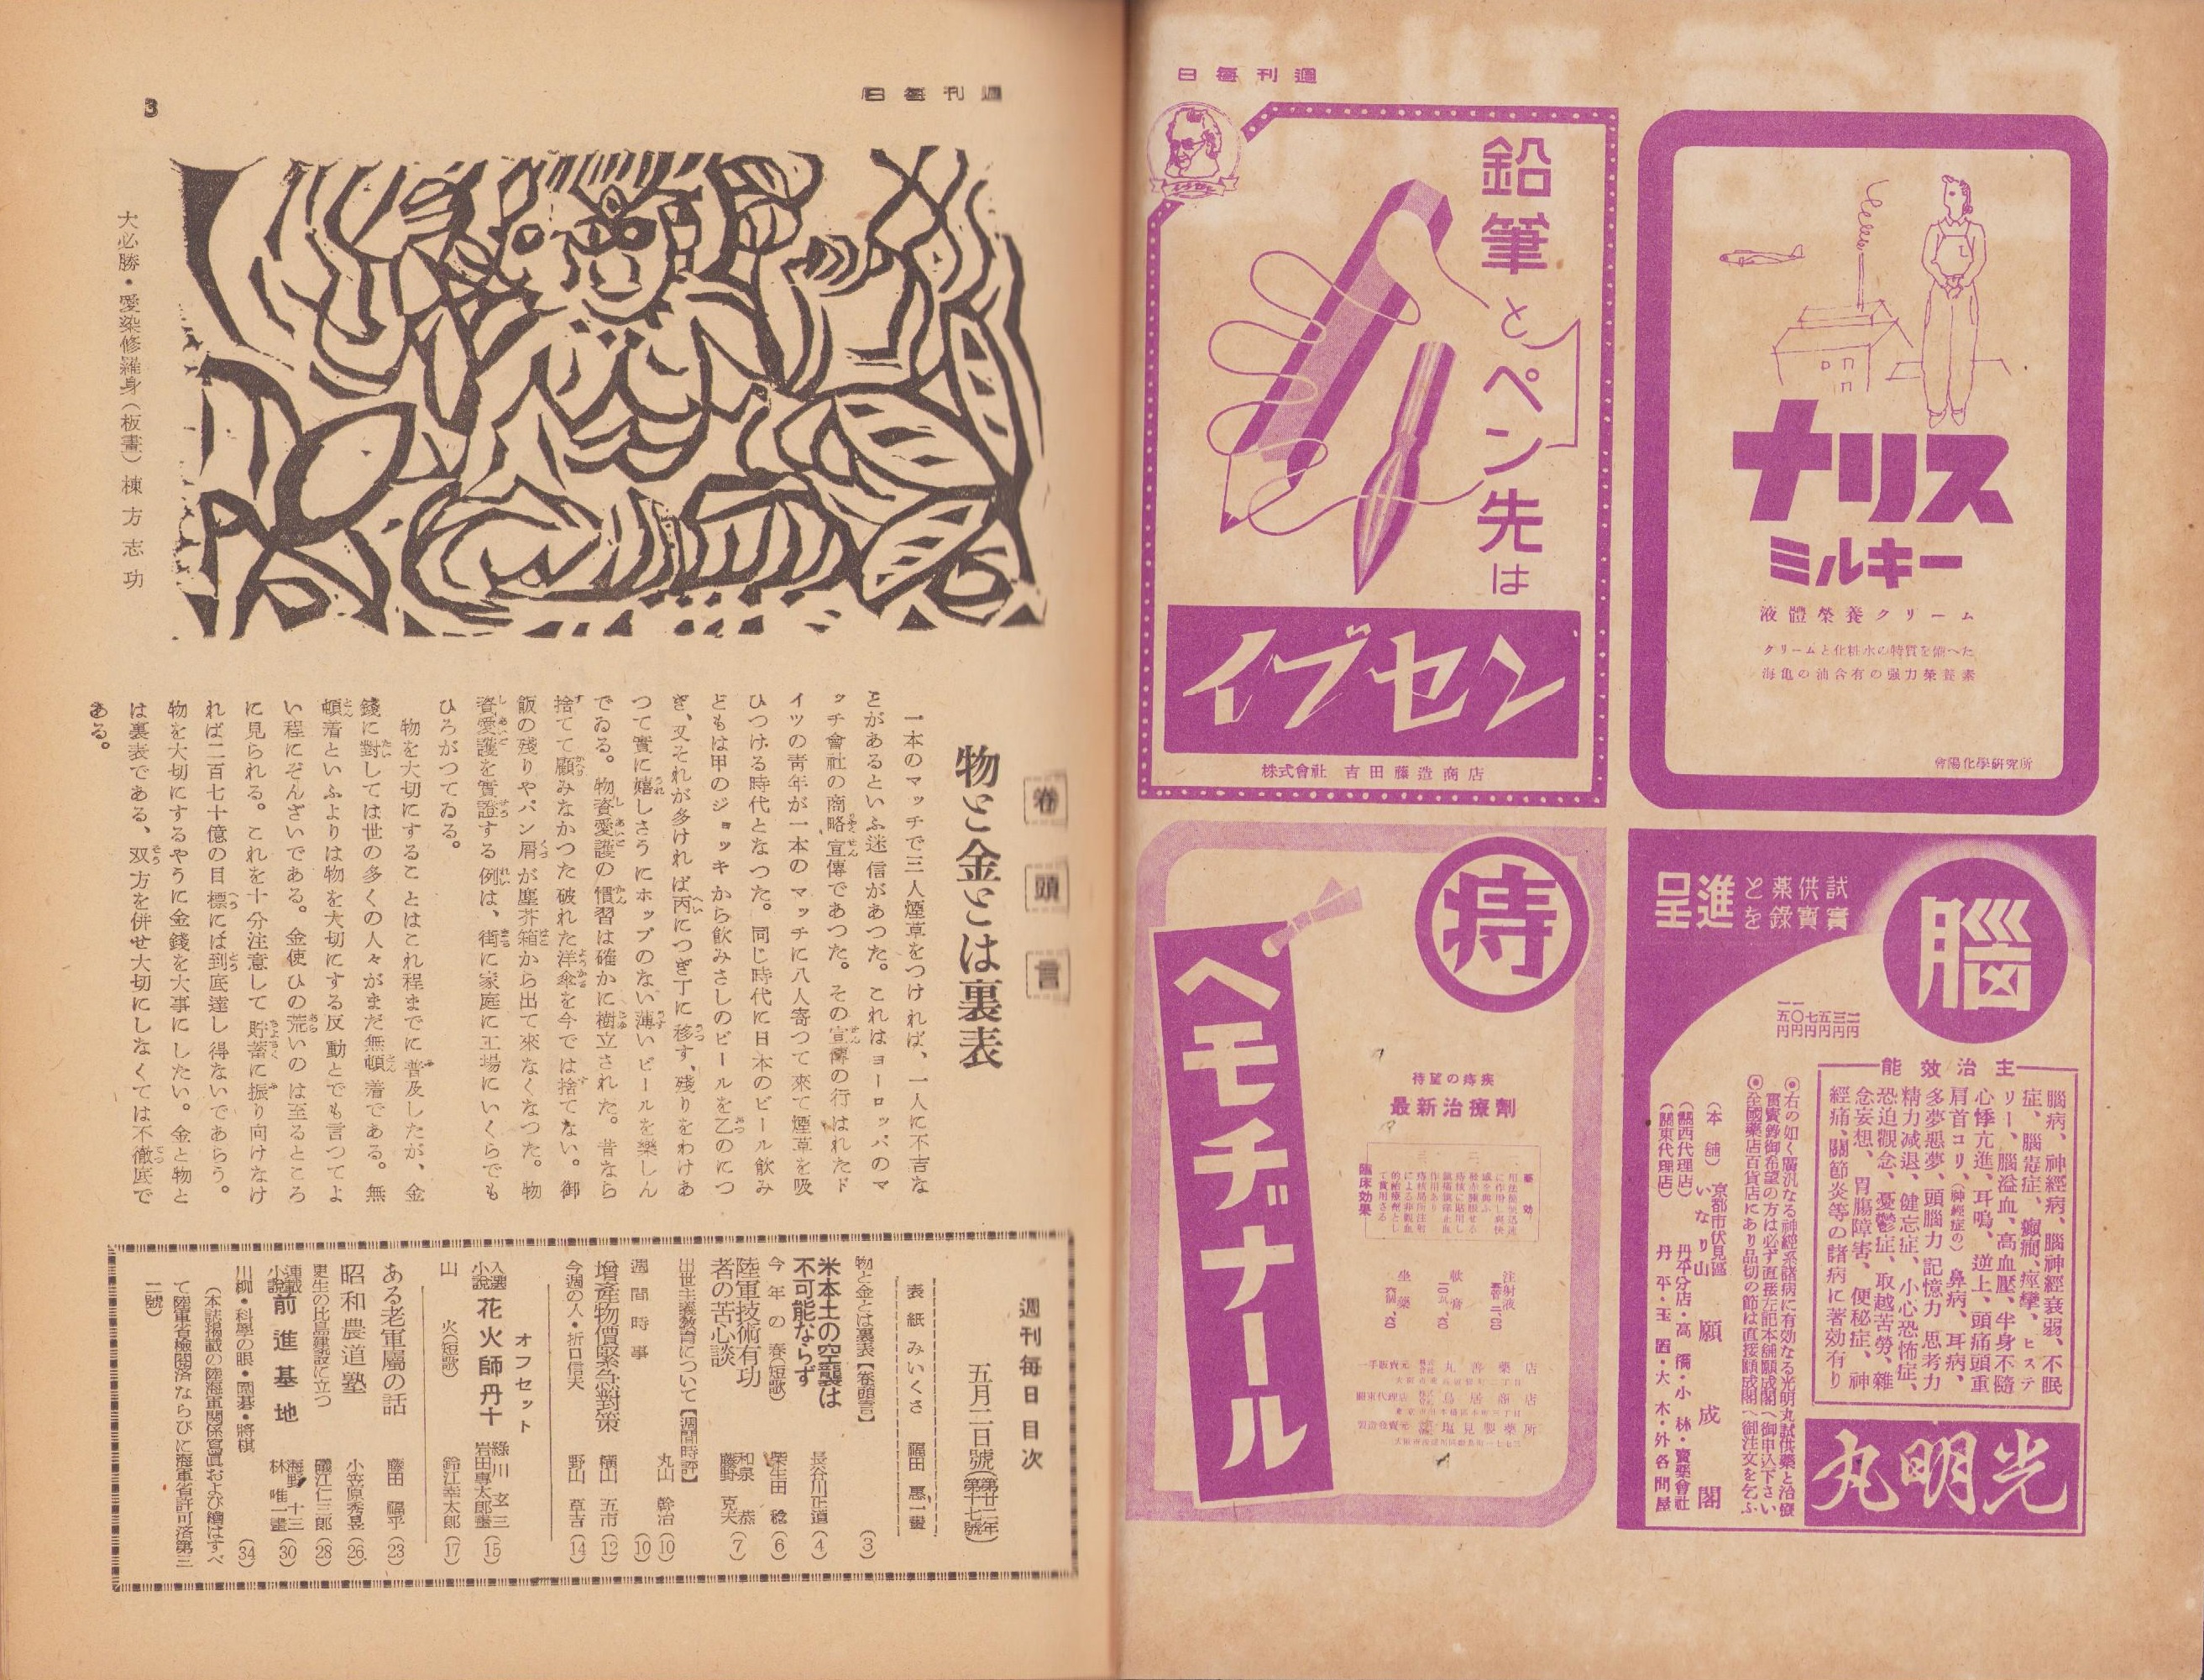 週刊毎日
ナリス
ミルキー
液體榮養クリーム
クリームと化粧水の特質を備へた
海亀の油含有の强力榮養素
會陽化學研究所
鉛筆とペン先は
イブセン
株式會社 吉田藤造商店
腦
試供薬と
實寶錄を
進呈
主治效能
腦病、神經病、腦神經衰弱、不眠
症、腦溢血、高血壓、半身不隨
心悸亢進、耳鳴、逆上、頭痛頭重
肩首コリ、(神經症の)鼻病、耳病、
多夢惡夢、頭腦力記憶力思考力
精力減退、健忘症、小心恐怖症、
恐迫觀念、憂鬱症、取越苦勞、雜
念妄想、胃腸障害、便秘症、神
經痛、關節炎等の諸病に著効有り
光明丸
◉右の如く廣汎なる神經系諸病に有効なる光明丸試供薬と治療
◉全國藥店百貨店にあり品切の節は直接願成閣へ御注文を乞ふ
(本舗) 京都市伏見區 いなり山 願成閣
(關西代理店) 丹平分店・高橋・小林・賣藥會社
(關東代理店) 丹平・玉置・大木・外各問屋
痔
ヘモヂナール
待望の痔疾
最新治療劑
臨床効果
注射液
軟膏
坐藥
丸善藥店
關東代理店 鳥居商店
製造發賣元 塩見製藥所
週刊毎日
3
大必勝・愛染修羅身(板畫) 棟方志功
卷頭言
物と金とは裏表
一本のマッチで三人煙草をつければ、一人に不吉な
とがあるといふ迷信があつた。これはヨーロッパのマ
ッチ會社の商略宣傳であつた。その宣傳の行はれたド
イツの靑年が一本のマッチに八人寄つて來て煙草を吸
ひつける時代となつた。同じ時代に日本のビール飲み
ともは甲のジョッキから飲みさしのビールを乙のにつ
ぎ、又それが多ければ丙につぎ丁に移す、殘りをわけあ
つて實に嬉しさうにホップのない薄いビールを樂しん
でゐる。物資愛護の慣習は確かに樹立された。昔なら
捨てて顧みなかつた破れた洋傘を今では捨てない。御
飯の殘りやパン屑が塵芥箱から出て來なくなつた。物
資愛護を實證する例は、街に家庭に工場にいくらでも
ひろがつてゐる。
物を大切にすることはこれ程までに普及したが、金
錢に對しては世の多くの人々がまだ無頓着である。無
頓着といふよりは物を大切にする反動とでも言つてよ
い程にぞんざいである。金使ひの荒いのは至るところ
に見られる。これを十分注意して貯蓄に振り向けなけ
れば二百七十億の目標には到底達し得ないであらう。
物を大切にするやうに金錢を大事にしたい。金と物と
は裏表である、双方を併せ大切にしなくては不徹底で
ある。
週刊毎日目次
五月二日號(第廿二年第十七號)
表紙 みいくさ 福田惠一畫
物と金とは裏表【卷頭言】 (3)
米本土の空襲は
不可能ならず 長谷川正道 (4)
今年の春(短歌) 柴生田稔 (6)
陸軍技術有功
者の苦心談 和泉恭 藤野克夫 (7)
出世主義教育について【週間時評】 丸山幹治 (10)
週間時事 (10)
增產物價緊急對策 横山五市 (12)
今週の人・折口信夫 野山草吉 (14)
オフセット
入選小說 花火師丹十 綠川玄三 岩田專太郎畫 (15)
山火(短歌) 鈴江幸太郎 (17)
ある老軍屬の話 藤田福乎 (23)
昭和農道塾 小笠原秀昱 (26)
更生の比島建設に立つ 磯江仁三郎 (28)
連載小說 前進基地 海野十三 林唯一畫 (30)
川柳・科學の眼・圍碁・將棋 (34)
(本誌揭載の陸海軍關係寫眞および繪はすべ
て陸軍省檢閱濟ならびに海軍省許可濟第三
二號)